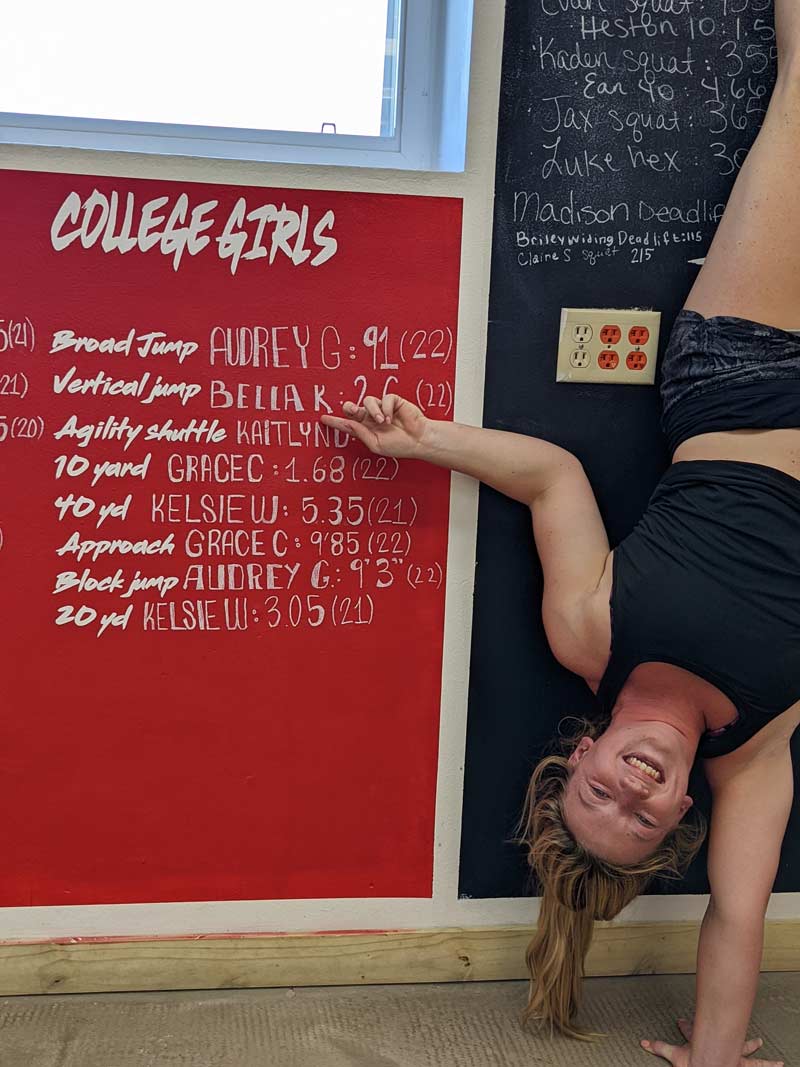 COLLEGE GIRLS
5(21)
Broad Jump AUDREY G: 91 (22)
21)
Vertical jump BELLA K: (22)
5(20)
Agility shuttle KAITLYN D
10 yard GRACE C: 1.68 (22)
40 yd KELSIE W: 5.35 (21)
Approach GRACE C: 9'85 (22)
Block jump AUDREY G.: 9'3" (22)
20 yd KELSIE W: 3.05 (21)
squat:
Heston 10: 1.5
Kaden squat: 355
Ean 40: 4.66
Jax squat: 365
Luke hex: 30
Madison Deadlif
Briley Widing Deadlift: 115
Claire S squat 215